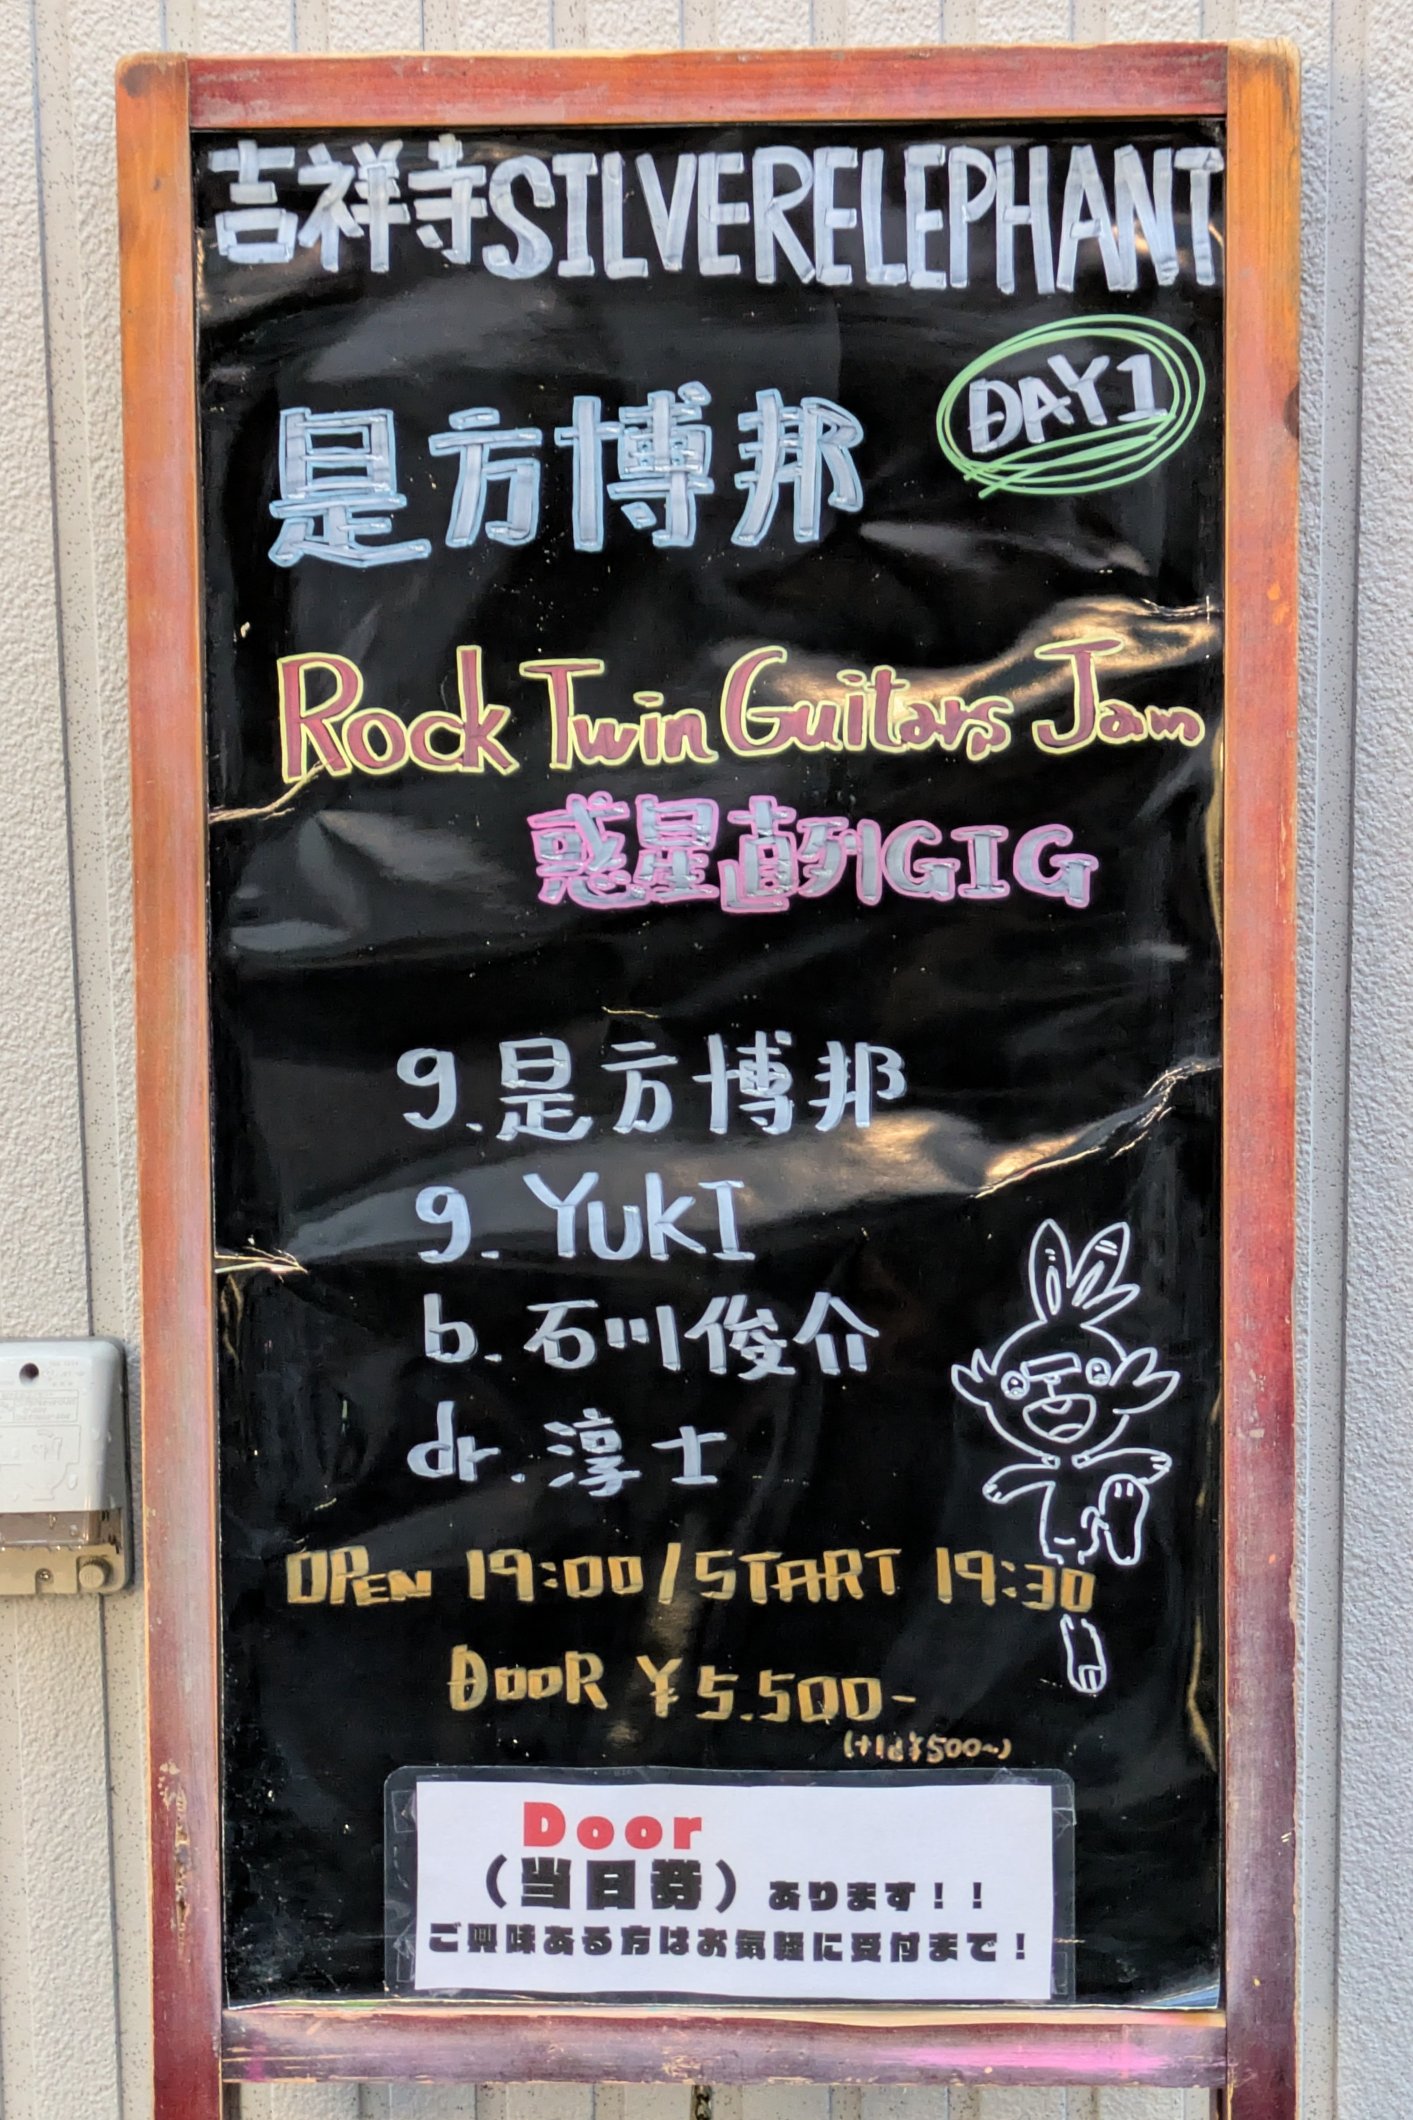 吉祥寺SILVERELEPHANT
DAY1
是方博邦
Rock Twin Guitars Jam
惑星直列GIG
g.是方博邦
g.YUKI
b.石川俊介
dr.淳士
OPEN 19:00/START 19:30
DOOR ¥5.500-
(+1d¥500~)
Door
(当日券)あります!!
ご興味ある方はお気軽に受付まで!